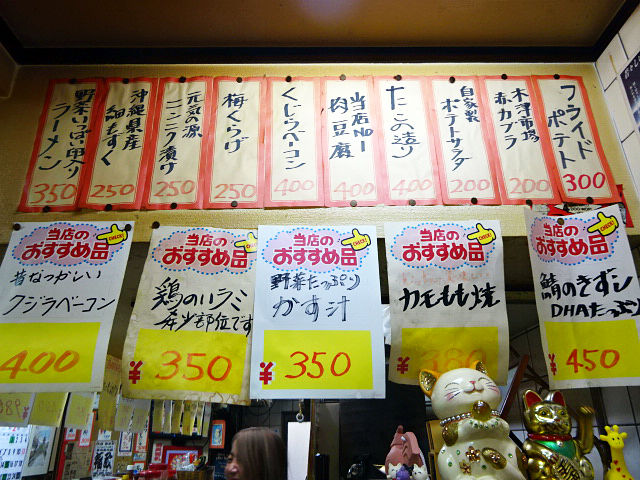 フライド
ポテト
300
木津市場
赤カブラ
200
自家製
ポテトサラダ
200
たこの造り
400
当店NO1
肉豆腐
400
くじらベーコン
400
梅くらげ
250
元気の源
ニンニク漬け
250
沖縄県産
細もずく
250
野菜いっぱい入り
ラーメン
350
当店の
おすすめ品
昔なつかしい
クジラベーコン
400
当店の
おすすめ品
鶏のハラミ
希少部位です
¥350
当店の
おすすめ品
野菜たっぷり
かす汁
¥350
当店の
おすすめ品
カモもも焼
¥380
当店の
おすすめ品
鯖のきずし
DHAたっぷり
¥450